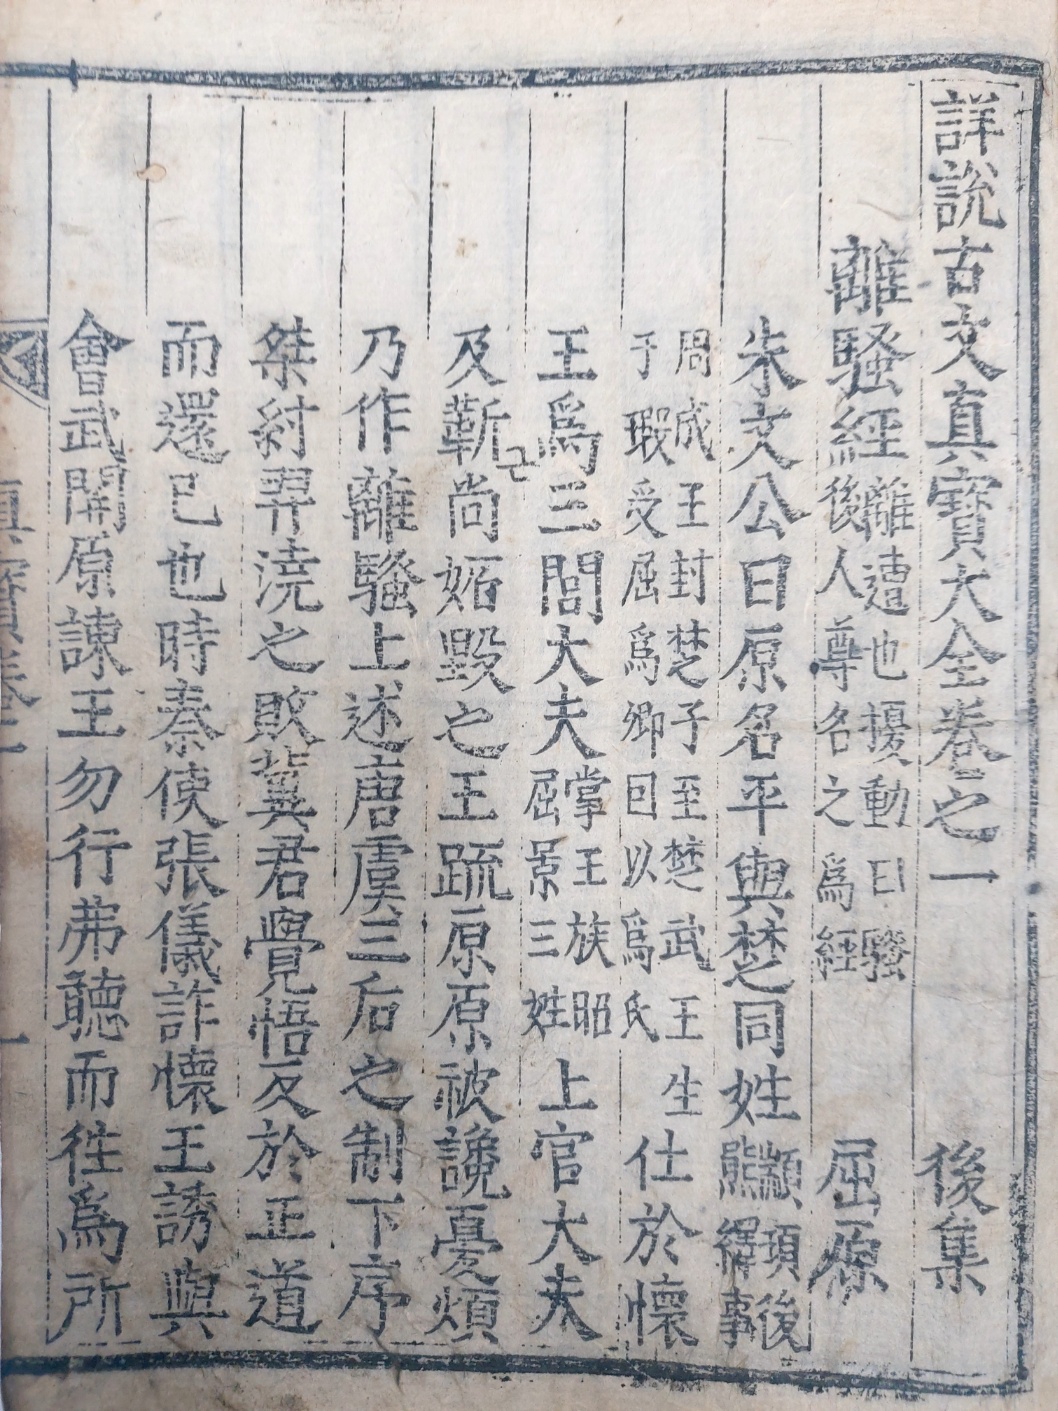 詳說古文真寶大全卷之一 後集
離騷經離遭也擾動曰騷後人尊名之爲經 屈原
朱文公曰原名平與楚同姓顓頊後熊繹事
周成王封楚子至楚武王生子瑕受屈爲卿因以爲氏仕於懷
王爲三閭大夫掌王族昭屈景三姓上官大夫
及靳尚妬毀之王疏原原被讒憂煩
乃作離騷上述唐虞三后之制下序
桀紂羿澆之敗冀君覺悟反於正道
而還己也時秦使張儀詐懷王誘與
會武關原諫王勿行弗聽而徃爲所
眞寶卷一 一